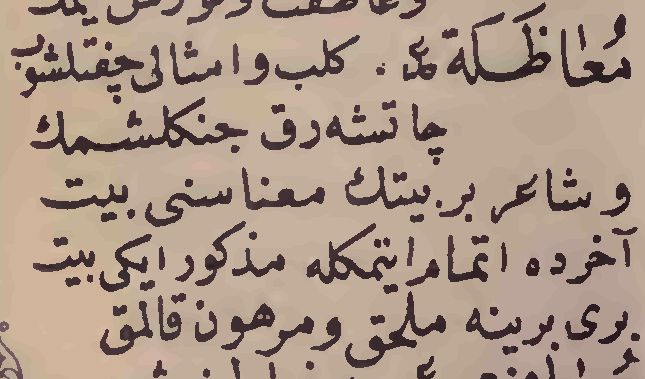 معاظكة ع. كلب و امثالى چفتلشوب
چاتشه رق جنكلشمك
و شاعر بر بيتك معناسنى بيت
آخرده اتمام ايتمكله مذكور ايكى بيت
برى برينه ملحق و مرهون قالمق